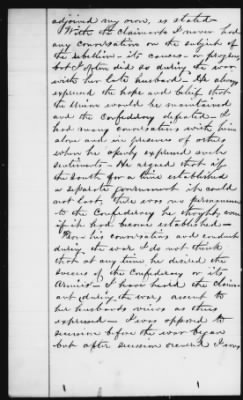 adjoined my own, is stated
With the claimant I never had
any conversation on the subject of
the rebellion - its causes - or progress
but I often did so during the war
with her late husband - He always
expressed the hope and belief that
the Union would be maintained
and the Confederacy defeated - I
had many conversations with him
alone and in presence of others
when he openly expressed such
sentiments - He argued that if
the South for a time established
a separate government it could
not last, there was no permanence
to the Confederacy he thought, even
if it had become established -
From his conversation and conduct
during the war I do not think
that at any time he desired the
success of the Confederacy or its
Armies - I have heard the claim-
ant (during the war) assent to
her husbands views as others
expressed - I was opposed to
secession before the war began
but after secession occurred I was